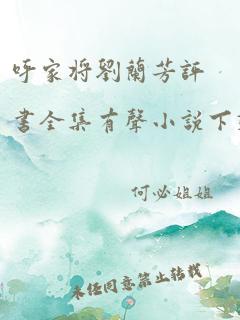 呼家将劉蘭芳評
書全集有聲小說下
何必姐姐
未经同意禁止转载